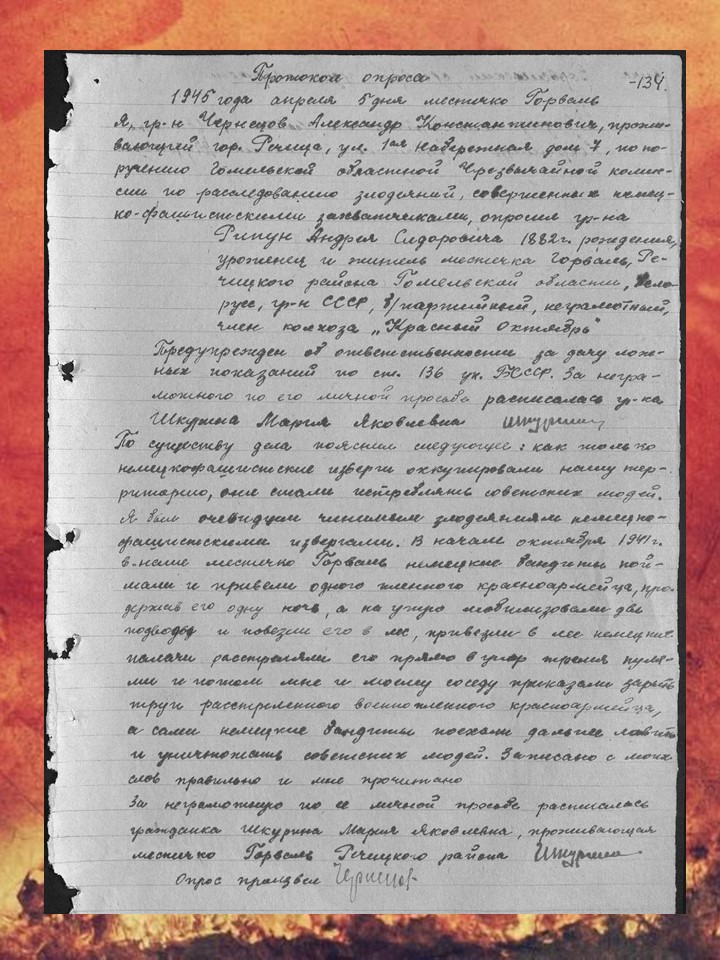 Протокол опроса
-134.
1945 года апреля 5 дня местечко Горваль
Я, гр-н Чернецов Александр Константинович, прожи-
вающий гор. Речица, ул. 1ая Набережная дом 7, по по-
ручению Гомельской областной Чрезвычайной комис-
сии по расследованию злодеяний, совершенных немец-
ко-фашистскими захватчиками, опросил гр-на
Рипун Андрея Сидоровича 1882 г. рождения,
уроженец и житель местечка Горваль, Ре-
чицкого района Гомельской области, бело-
русс, гр-н СССР, б/партийный, неграмотный,
член колхоза „Красный Октябрь"
Предупрежден об ответственности за дачу лож-
ных показаний по ст. 136 ук. БССР. За негра-
мотного по его личной просьбе расписалась гр-ка
Шкурина Мария Яковлевна
По существу дела пояснил следующее: как только
немецкофашистские изверги оккупировали нашу тер-
риторию, они стали истреблять советских людей.
Я был очевидцем чинимым злодеяниям немецко-
фашистскими извергами. В начале октября 1941 г.
в наше местечко Горваль немецкие бандиты пой-
мали и привели одного пленного красноармейца, про-
держав его одну ночь, а на утро мобилизовали две
подводы и повезли его в лес, приведши в лес немецкие
палачи расстреляли его прямо в упор тремя пуля-
ми и потом мне и моему соседу приказали зарыть
труп расстреленного военнопленного красноармейца,
а сами немецкие бандиты поехали дальше ловить
и уничтожать советских людей. Записано с моих
слов правильно и мне прочитано
За неграмотную по ее личной просьбе расписалась
гражданка Шкурина Мария Яковлевна, проживающая
местечко Горваль Речицкого района
Опрос произвел Чернецов